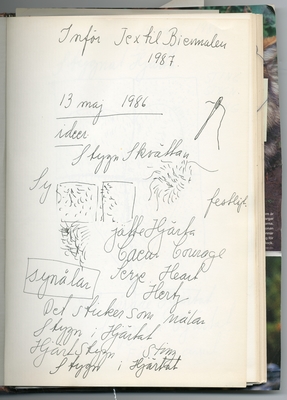 Inför Textil Biennalen
1987.
13 maj 1986
ideer
Stygn Skvättan
Sy
festligt
jätte Hjärta
Cœur Courage
Heart
synålar
Hertz
Det sticker som nålar
Stygn i Hjärtat
Hjärtstygn
Stygn i Hjärtat